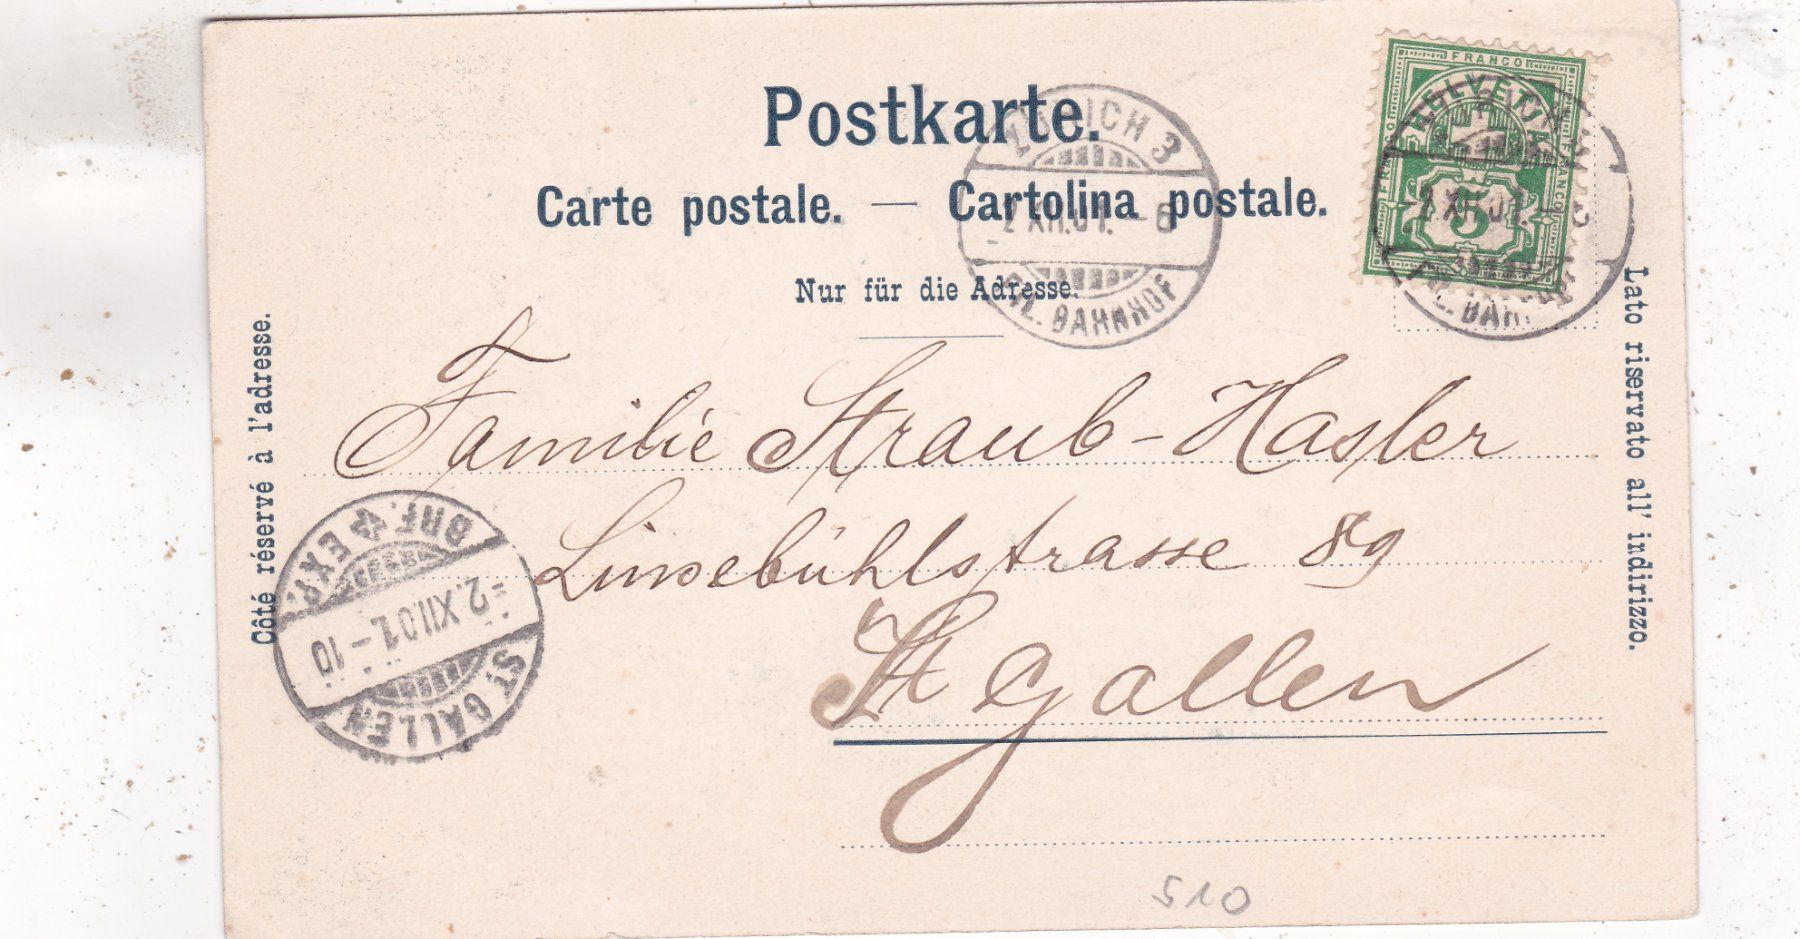 Postkarte.
Carte postale. — Cartolina postale.
Nur für die Adresse.
Côté réservé à l'adresse.
Lato riservato all' indirizzo.
FRANCO
FRANCO
FRANCO
5
ZÜRICH 3
-2 XII.01.-6
FIL. BAHNHOF
-2 XII.01.-
Familie Straub-Hasler
Linsebühlstrasse 89
St Gallen
BRF. EXP.
-2.XII.01.-10
ST. GALLEN
510